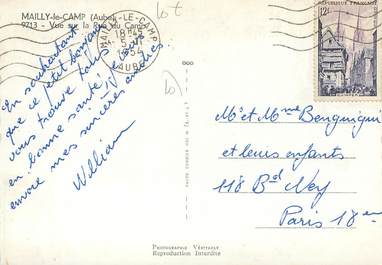 MAILLY-le-CAMP (Aube)
9213 - Vue sur la Rue du Camp
MAILLY-LE-CAMP
18H45
5-7
1954
AUBE
RÉPUBLIQUE FRANÇAISE
12F
En souhaitant
que ce petit bonjour
vous trouve tous
en bonne santé, je vous
envoie mes sincères amitiés
William
Mr et Mme Benguigui
et leurs enfants
118 Bd Ney
Paris 18e
PHOTOGRAPHIE VÉRITABLE
Reproduction Interdite